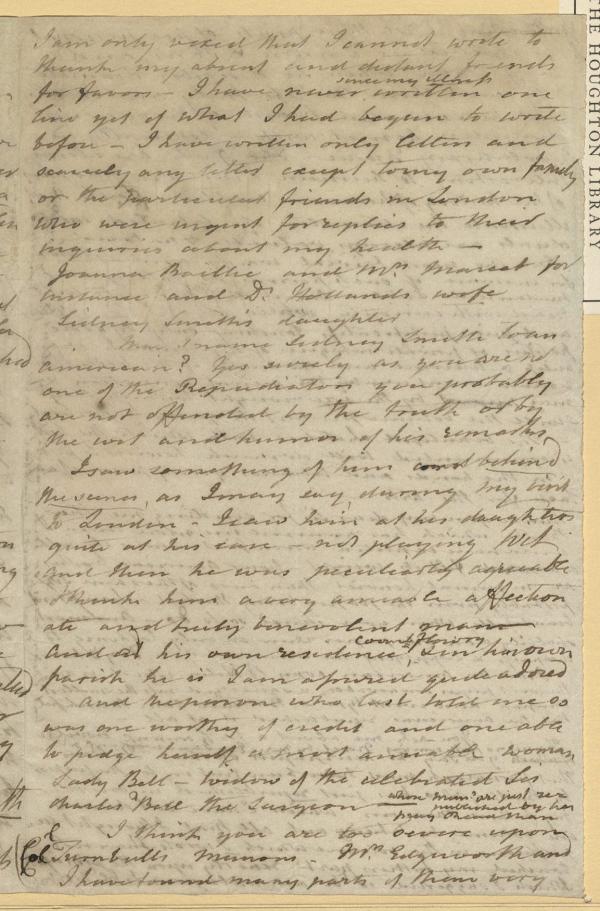 I am only vexed that I cannot write to
thank my absent and distant friends
since my illness
for favors – I have never written one
line yet of what I had begun to write
before – I have written only letters and
scarcely any letter except to my own family
or the particular friends in London
who were urgent for replies to their
inquiries about my health –
Joanna Baillie and Mrs Marcet for
instance and Dr Hollands wife
Sidney Smith's daughter
I name Sidney Smith to an
american? Yes surely as you are not
one of the Repudiators you probably
are not offended by the truth or by
the wit and humor of his remarks
I saw something of him behind
the scenes, as I may say, during my visit
to London – I saw him at his daughters
quite at his ease – not playing Wit
and then he was peculiarly agreeable
I think him a very amiable affection
ate and truly benevolent man
Combe Florey
And at his own residence, & in his own
parish he is I am assured quite adored
and the person who last told me so
was one worthy of credit and one able
to judge herself a most amiable woman,
Lady Bell – widow of the celebrated Sir
Charles Bell the Surgeon –
whose are just
published by her
I think you are too severe upon
(Col Turnbulls Memoirs. Mrs Edgeworth and
I have found many parts of them very
THE HOUGHTON LIBRARY